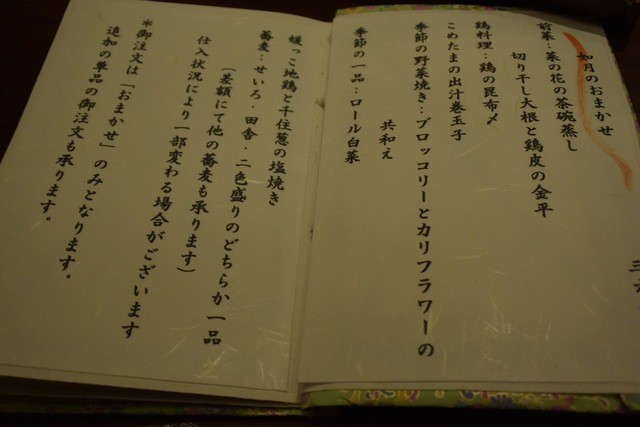 如月のおまかせ
前菜：菜の花の茶碗蒸し
切り干し大根と鶏皮の金平
鶏料理：鶏の昆布〆
こめたまの出汁巻玉子
季節の野菜焼き：ブロッコリーとカリフラワーの
共和え
季節の一品：ロール白菜
媛っこ地鶏と千住葱の塩焼き
蕎麦：せいろ・田舎・二色盛りのどちらか一品
（差額にて他の蕎麦も承ります）
仕入状況により一部変わる場合がございます
＊御注文は「おまかせ」のみとなります。
追加の単品の御注文も承ります。